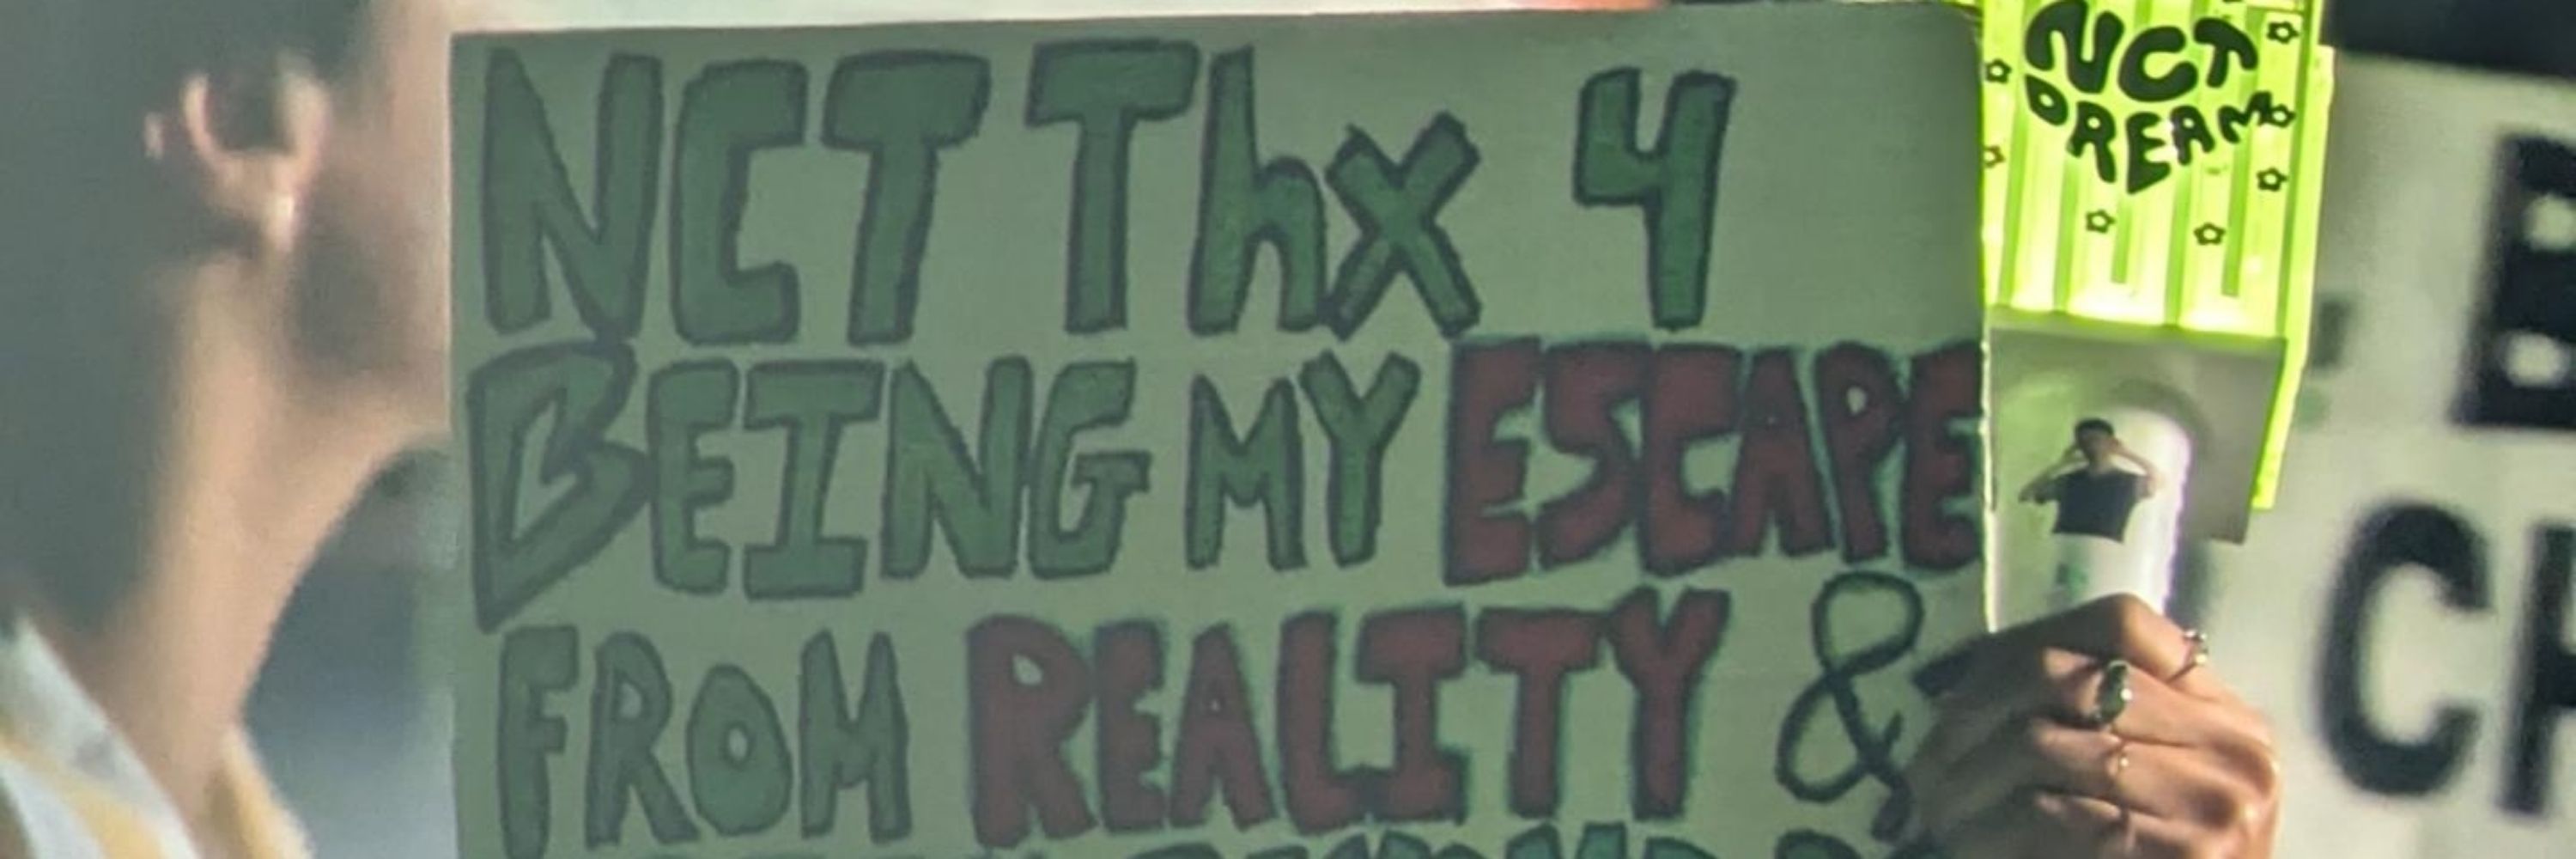 NCT Thx 4
BEING MY ESCAPE
FROM REALITY &
NCT
DREAM